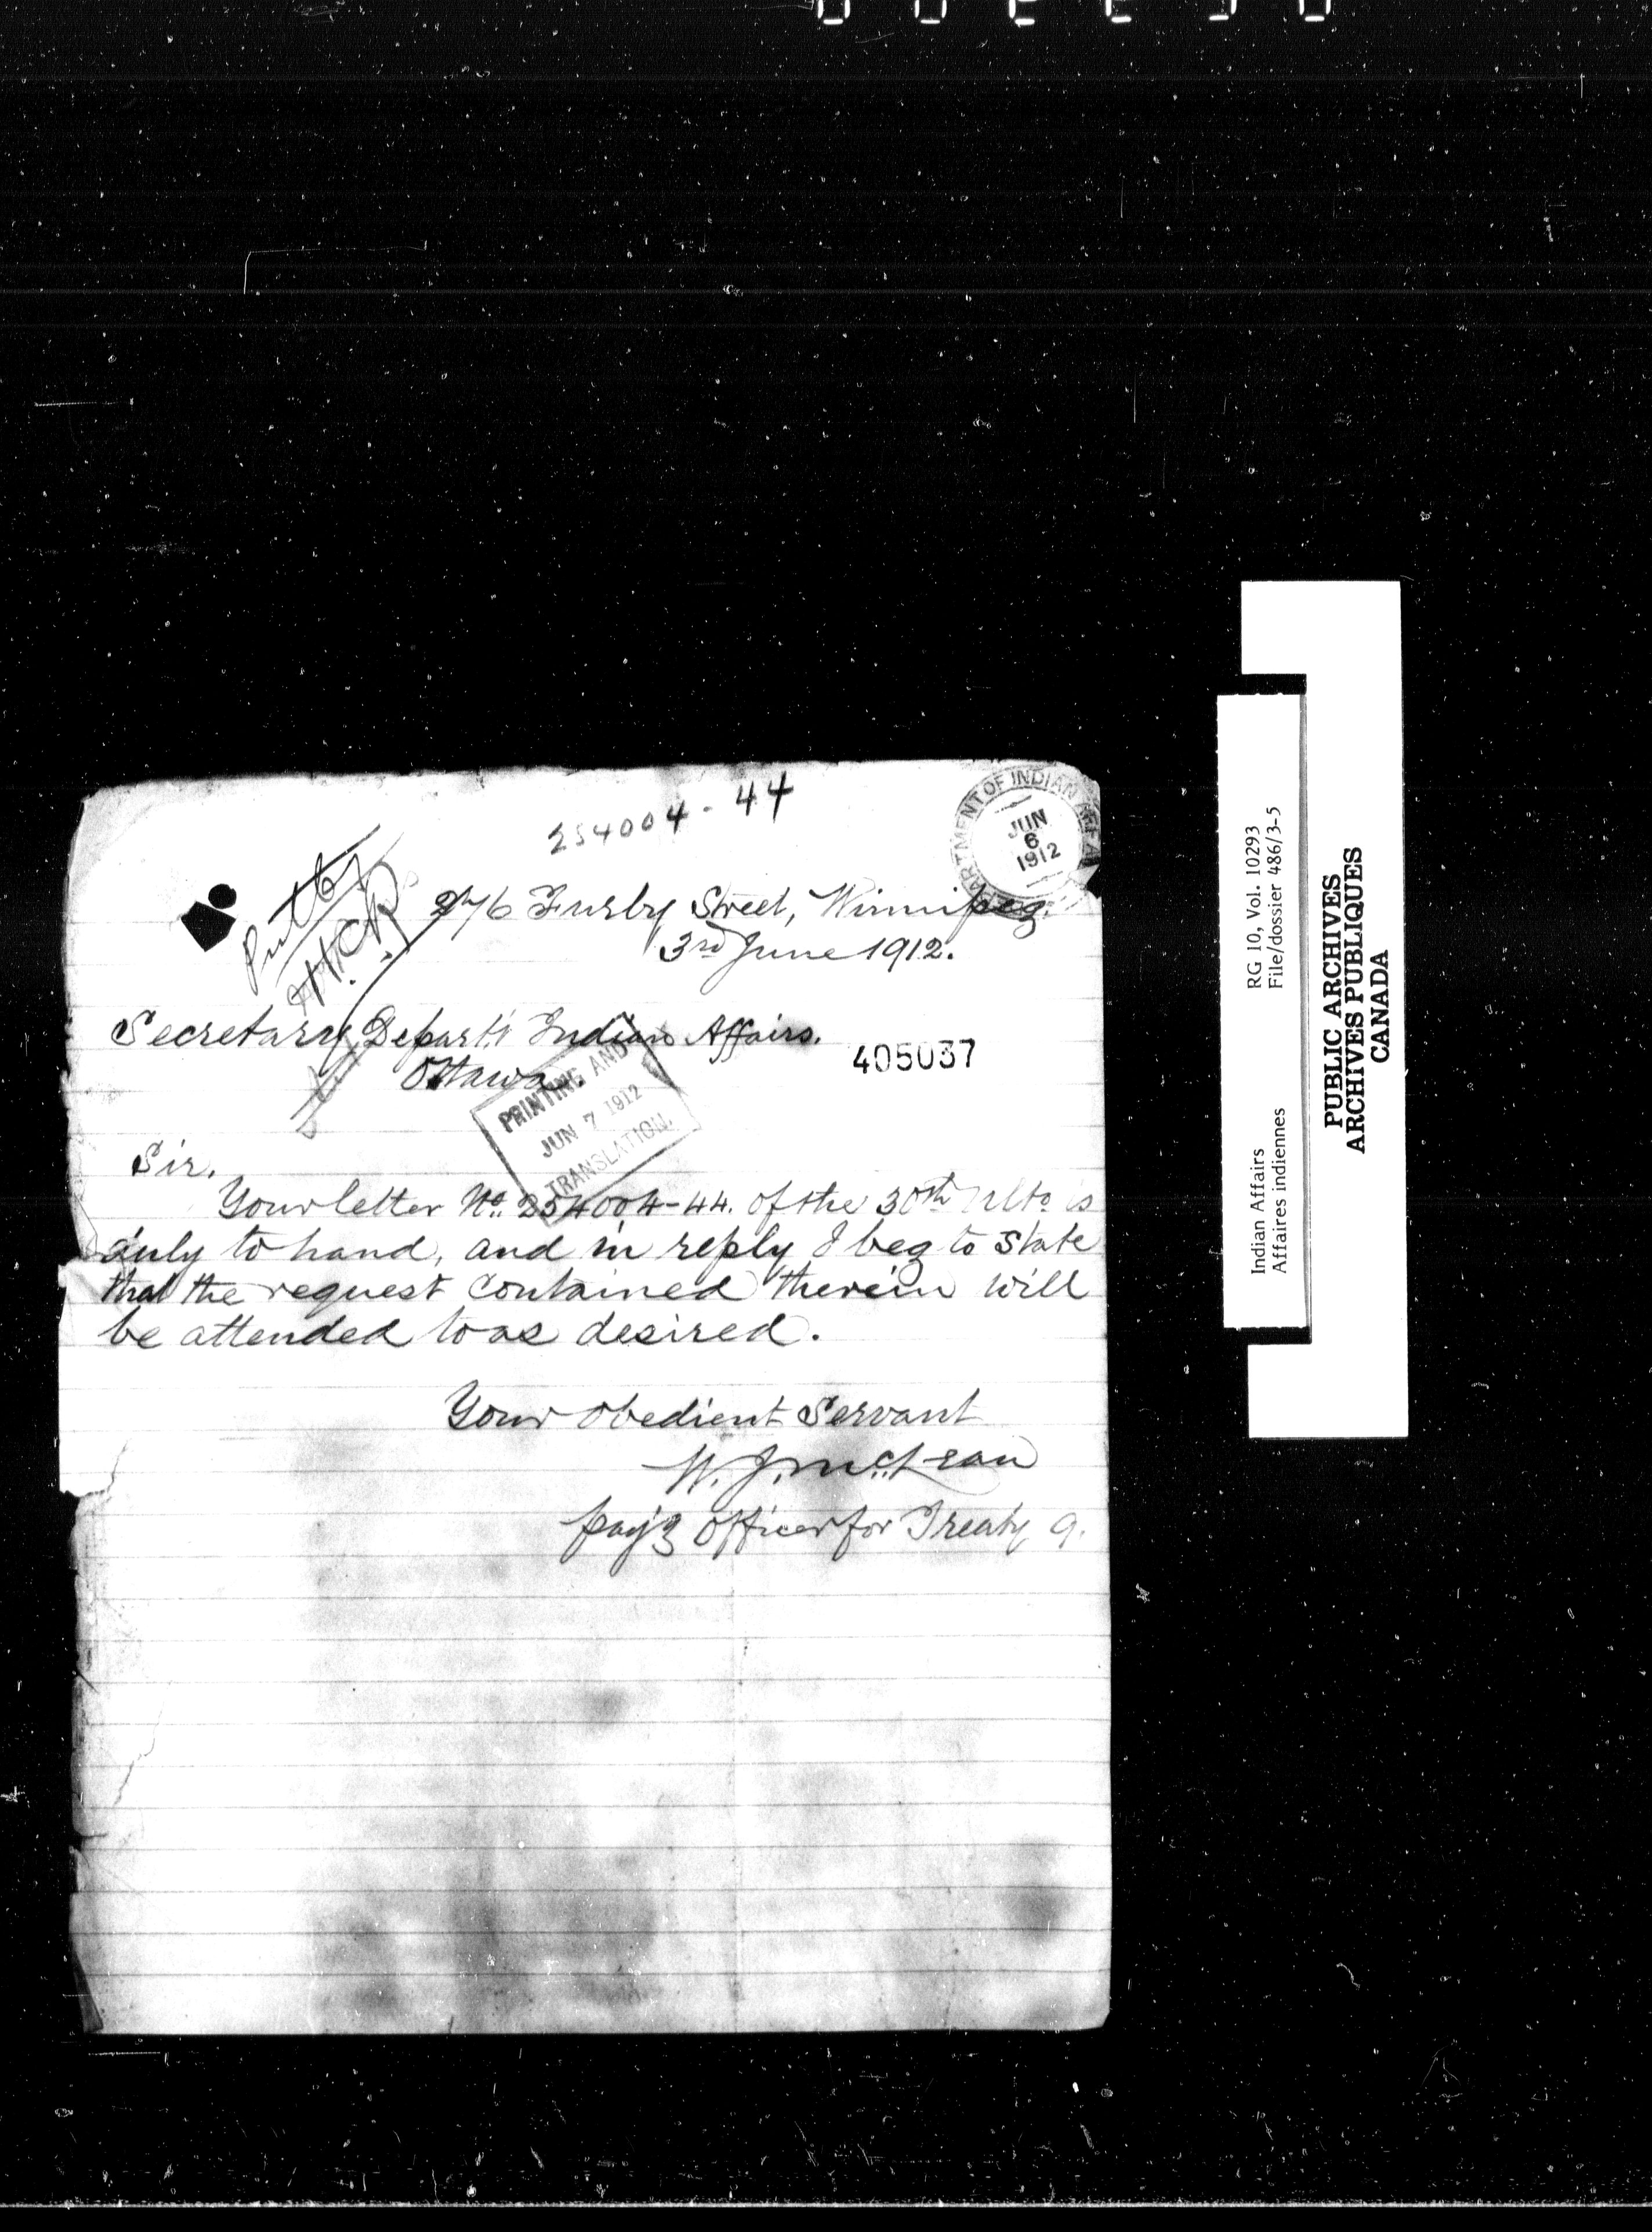 254004-44
DEPARTMENT OF INDIAN AFFAI
JUN
6
1912
276 Furby Street, Winnipeg.
3rd June 1912.
Secretary Departt Indian Affairs.
Ottawa.
405037
PRINTING AND
JUN 7 1912
TRANSLATION.
Sir.
Your letter No. 254004-44. of the 30th Ulto. is
duly to hand, and in reply I beg to state
that the request contained therein will
be attended to as desired.
Your obedient Servant
W. J. McLean
payg officer for Treaty 9.
Indian Affairs RG 10, Vol. 10293
Affaires indiennes File/dossier 486/3-5
PUBLIC ARCHIVES
ARCHIVES PUBLIQUES
CANADA